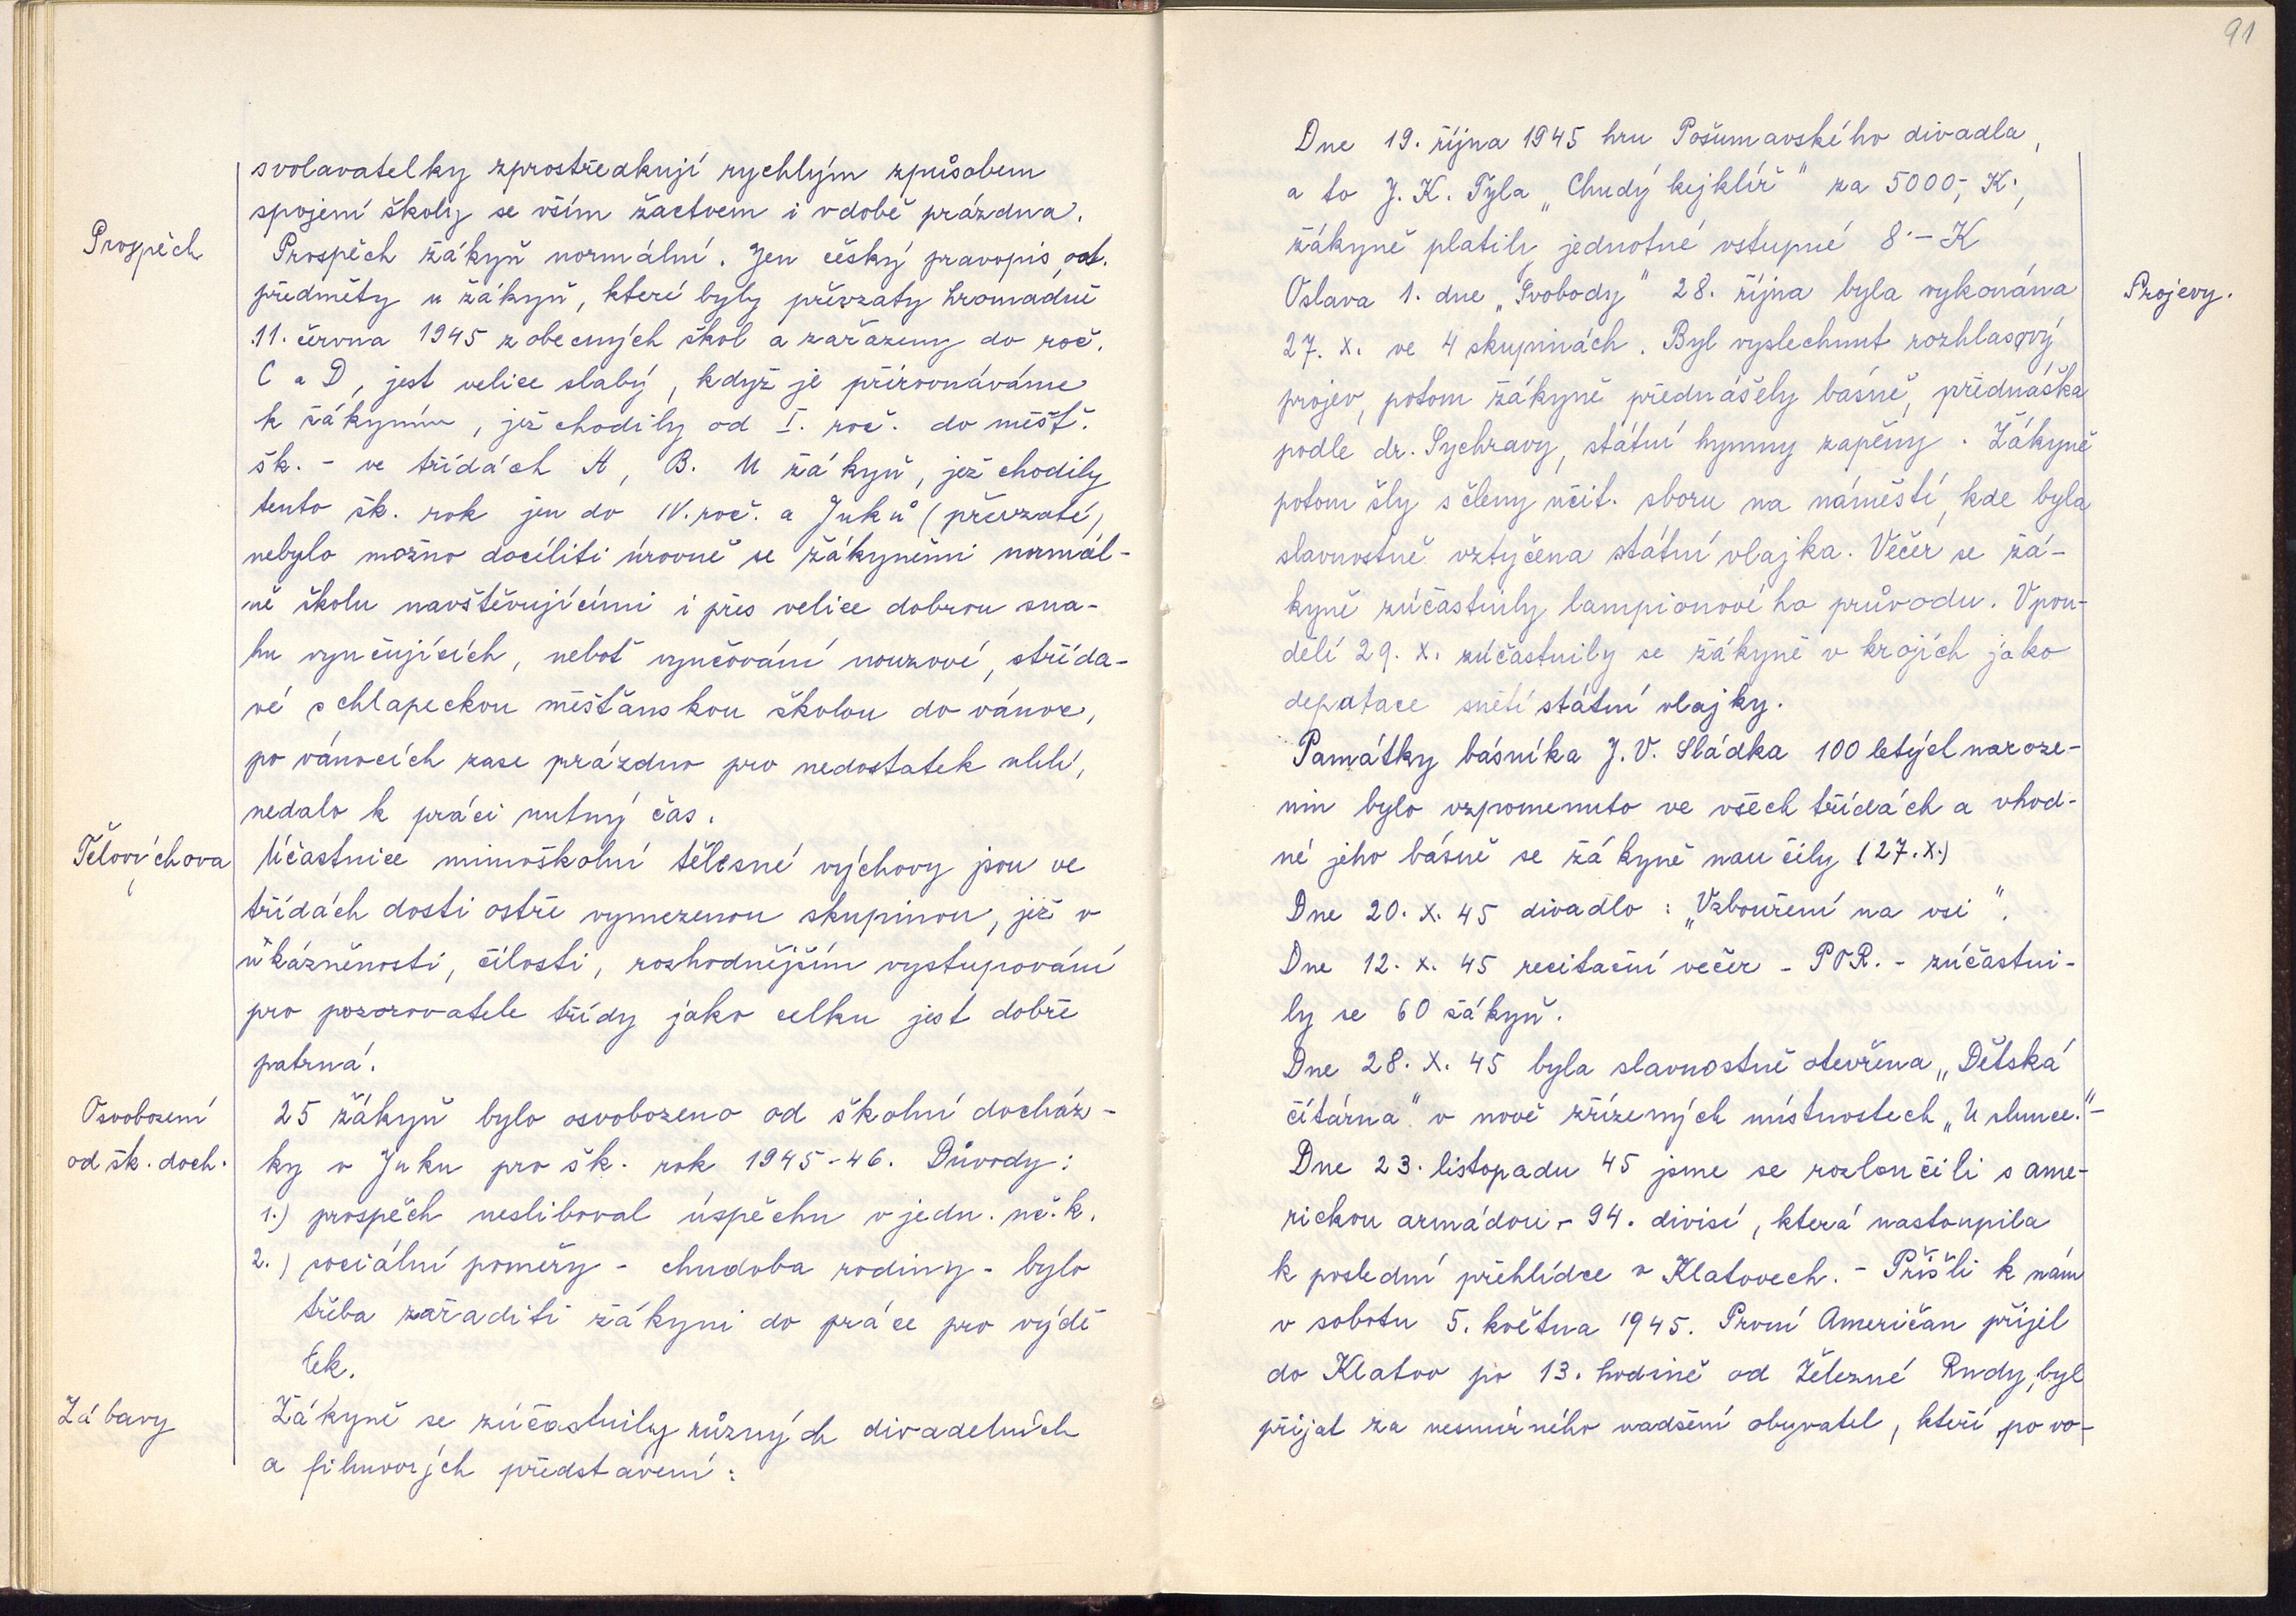 svolavatelky zprostředkují rychlým způsobem
spojení školy se vším žactvem i v době prázdna.
Prospěch
Prospěch žákyň normální. Jen český pravopis, ost.
předměty u žákyň, které byly převzaty hromadně
11. června 1945 z obecných škol a zařazeny do roč.
C a D, jest velice slabý, když je přirovnáváme
k žákyním, jež chodily od I. roč. do měšť.
šk. - ve třídách A, B. U žákyň, jež chodily
tento šk. rok jen do IV. roč. a Juků (převzaté)
nebylo možno docíliti úrovně se žákyněmi normál-
ně školu navštěvujícími i přes velice dobrou sna-
hu vyučujících, neboť vyučování nouzové, střída-
vé s chlapeckou měšťanskou školou do vánoc,
po vánocích zase prázdno pro nedostatek uhlí,
nedalo k práci nutný čas.
Tělovýchova
Účastnice mimoškolní tělesné výchovy jsou ve
třídách dosti ostře vymezenou skupinou, jež v
ukázněnosti, čilosti, rozhodnějším vystupování
pro pozorovatele třídy jako celku jest dobře
patrná.
Osvobození
od šk. doch.
25 žákyň bylo osvobozeno od školní docház-
ky v Juku pro šk. rok 1945-46. Důvody:
1.) prospěch nesliboval úspěchu v jedn. uč. k.
2.) sociální poměry - chudoba rodiny - bylo
třeba zařaditi žákyni do práce pro výdě
lek.
Zábavy
Žákyně se zúčastnily různých divadelních
a filmových představení:
91
Dne 19. října 1945 hru Pošumavského divadla,
a to J. K. Tyla „Chudý kejklíř" za 5000,- K.,
žákyně platily jednotné vstupné 8·- K
Projevy.
Oslava 1. dne „Svobody" 28. října byla vykonána
27. X. ve 4 skupinách. Byl vyslechnut rozhlasový
projev, potom žákyně přednášely básně, přednáška
podle dr. Sychravy, státní hymny zapěny. Žákyně
potom šly s členy učit. sboru na náměstí, kde byla
slavnostně vztyčena státní vlajka. Večer se žá-
kyně zúčastnily lampionového průvodu. V pon-
dělí 29. X. zúčastnily se žákyně v krojích jako
depatace snětí státní vlajky.
Památky básníka J. V. Sládka 100 letých naroze-
nin bylo vzpomenuto ve všech třídách a vhod-
né jeho básně se žákyně naučily (27. X.)
Dne 20. X. 45 divadlo: „Vzbouření na vsi".
Dne 12. X. 45 recitační večer - POR. - zúčastni-
ly se 60 žákyň.
Dne 28. X. 45 byla slavnostně otevřena „Dětská
čítárna" v nově zřízených místnostech „U slunce."-
Dne 23. listopadu 45 jsme se rozloučili s ame-
rickou armádou - 94. divisí, která nastoupila
k poslední přehlídce v Klatovech. - Přišli k nám
v sobotu 5. května 1945. První Američan přijel
do Klatov po 13. hodině od Železné Rudy, byl
přijat za nesmírného nadšení obyvatel, kteří po vo-